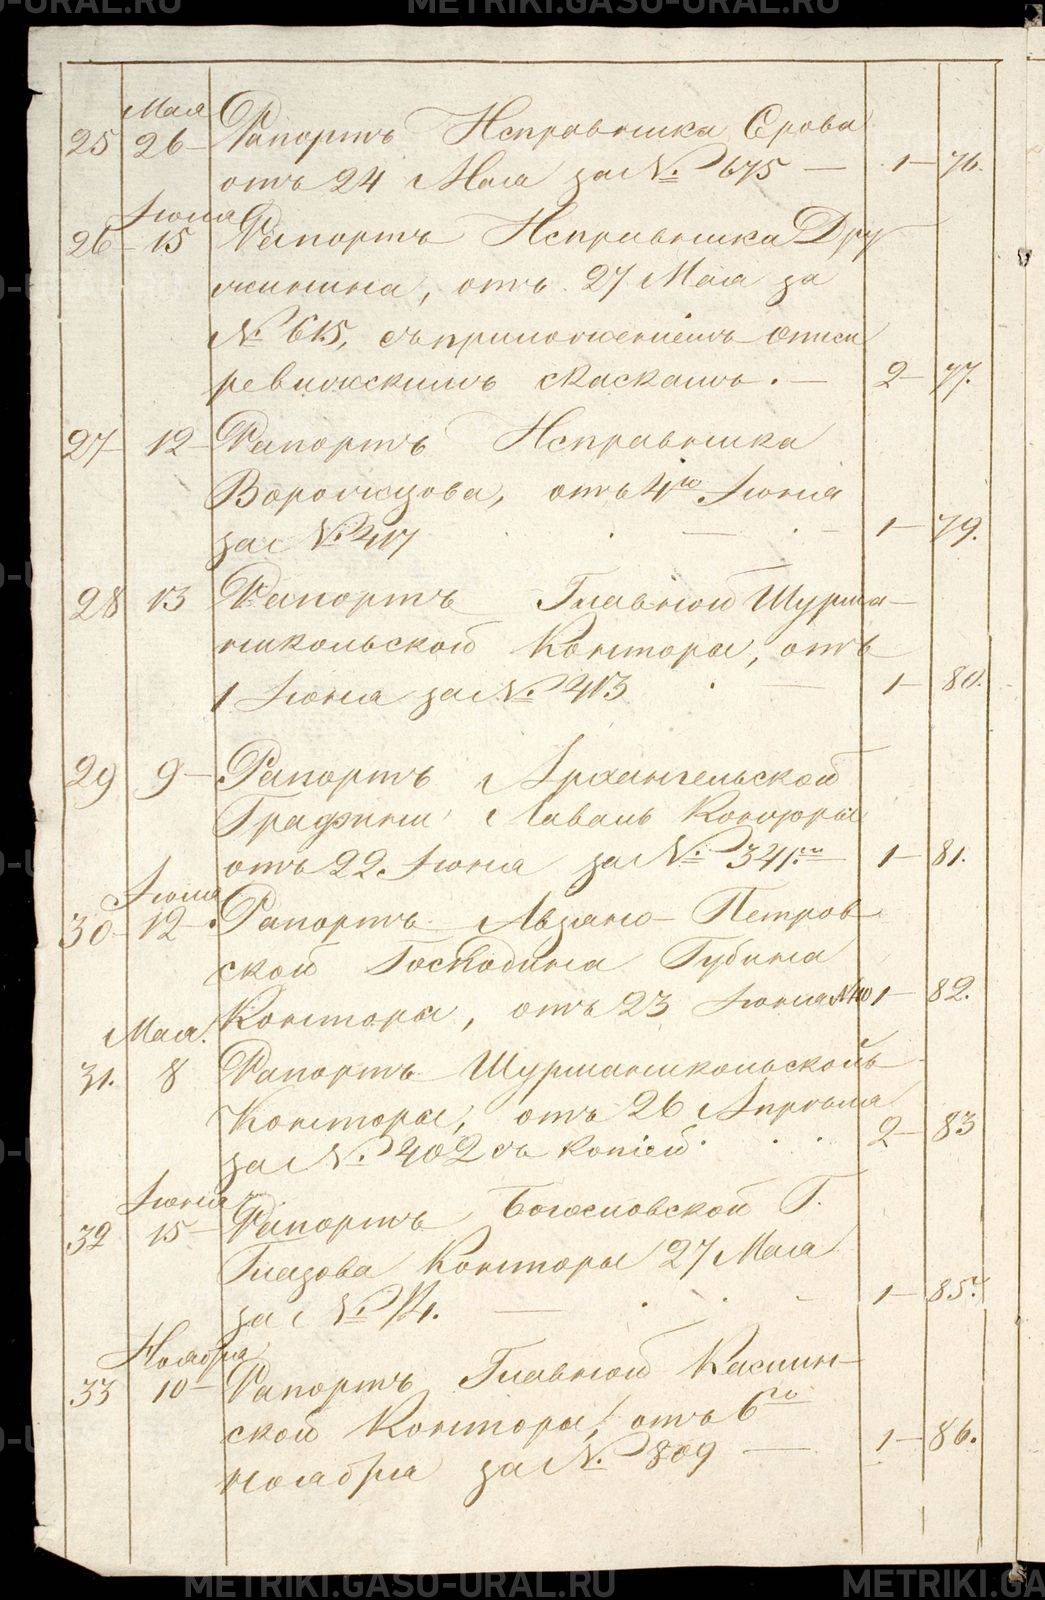 METRIKI.GASO-URAL.RU
Мая
25 26 Рапортъ Исправника Ерова
отъ 24 Мая за № 675 — 1 — 76.
Іюня
26 15 Рапортъ Исправника Дру
жинина, отъ 27 Мая за
№ 615, съ приложеніемъ описи
ревижскимъ скаскамъ. — 2 — 77.
27 12 Рапортъ Исправника
Ворожцова, отъ 4го Іюня
за № 417 — 1 — 79.
28 13 Рапортъ Главной Шурма
никольской Конторы, отъ
1 Іюня за № 413 — 1 — 80.
29 9 Рапортъ Архангельской
Графини Лаваль Конторы
отъ 22. Іюня за № 341. — 1 — 81.
Іюля
30 12 Рапортъ Авзяно-Петров
ской Господина Губина
Конторы, отъ 23 Іюня 1 — 82.
Мая.
31. 8 Рапортъ Шурманикольской
Конторы, отъ 26 Апрѣля
за № 402 съ копіей 2 — 83
Іюня
32 15 Рапортъ Богословской Г.
Глазова Конторы 27 Мая
за № — 1 — 85.
Ноября
33 10 Рапортъ Главной Каслин-
ской Конторы, отъ 6го
Ноября за № 809 — 1 — 86.
METRIKI.GASO-URAL.RU